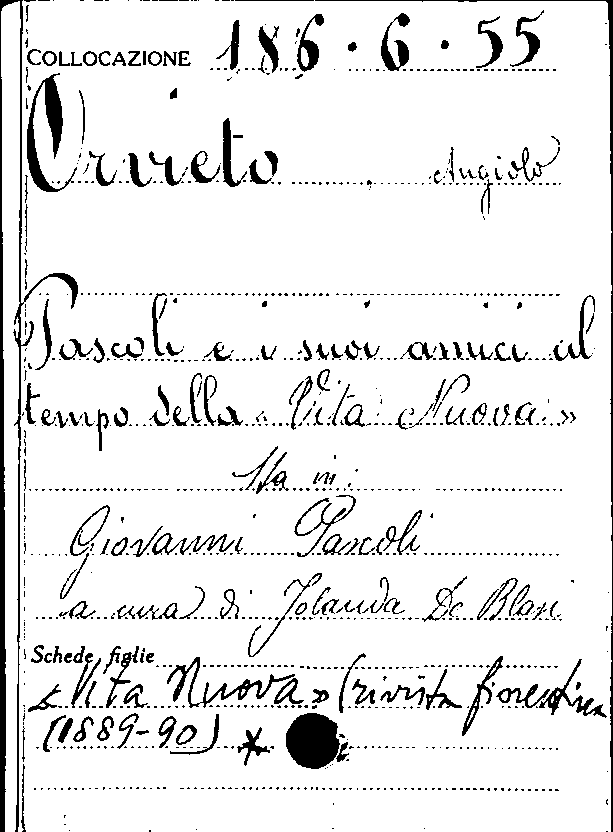 COLLOCAZIONE 186.6.55
Orvieto, Angiolo
Pascoli e i suoi amici al
tempo della « Vita Nuova »
Sta in:
Giovanni Pascoli
a cura di Jolanda De Blasi
Schede figlie
« Vita Nuova » (rivista fiorentina
(1889-90) *